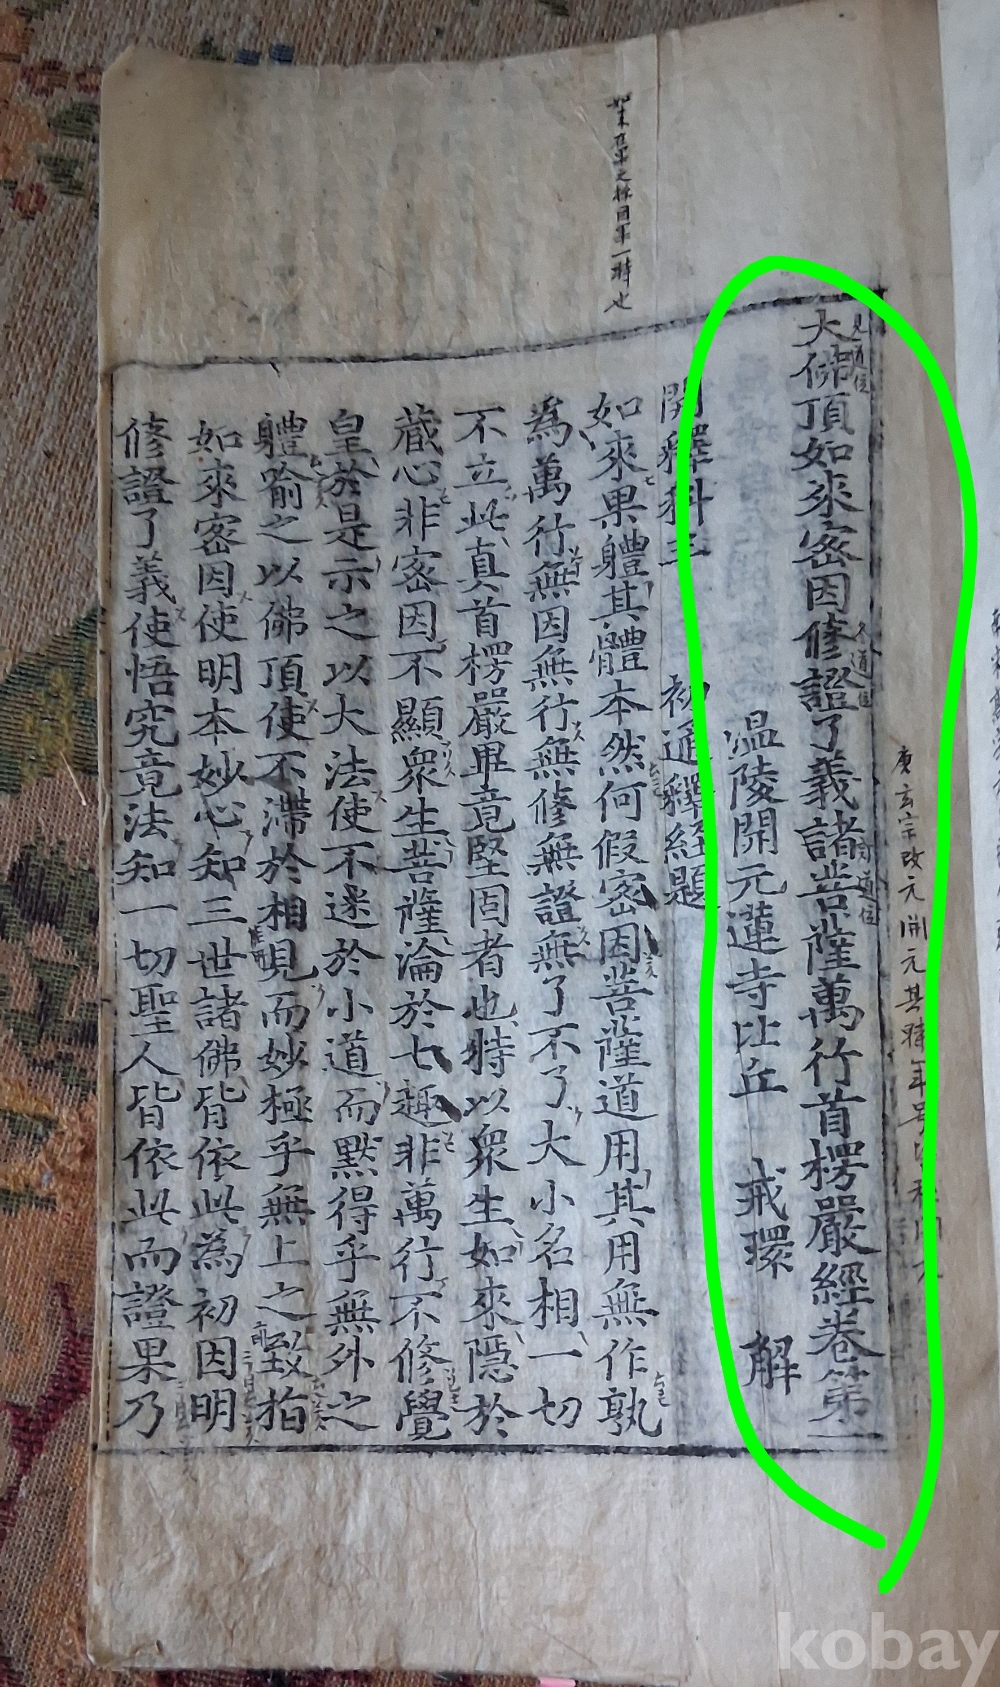 大佛頂如來密因修證了義諸菩薩萬行首楞嚴經卷第一
溫陵開元蓮寺比丘 戒環 解
開釋科三 初通釋經題
如來果體其體本然何假密因菩薩道用其用無作孰
為萬行無因無行無修無證無了不了大小名相一切
不立此真首楞嚴畢竟堅固者也特以眾生如來隱於
藏心非密因不顯眾生菩薩淪於七趣非萬行不修覺
皇於是示之以大法使不迷於小道而默得乎無外之
體喻之以佛頂使不滯於相見而妙極乎無上之致指
如來密因使明本妙心知三世諸佛皆依此為初因明
修證了義使悟究竟法知一切聖人皆依此而證果乃
kobay